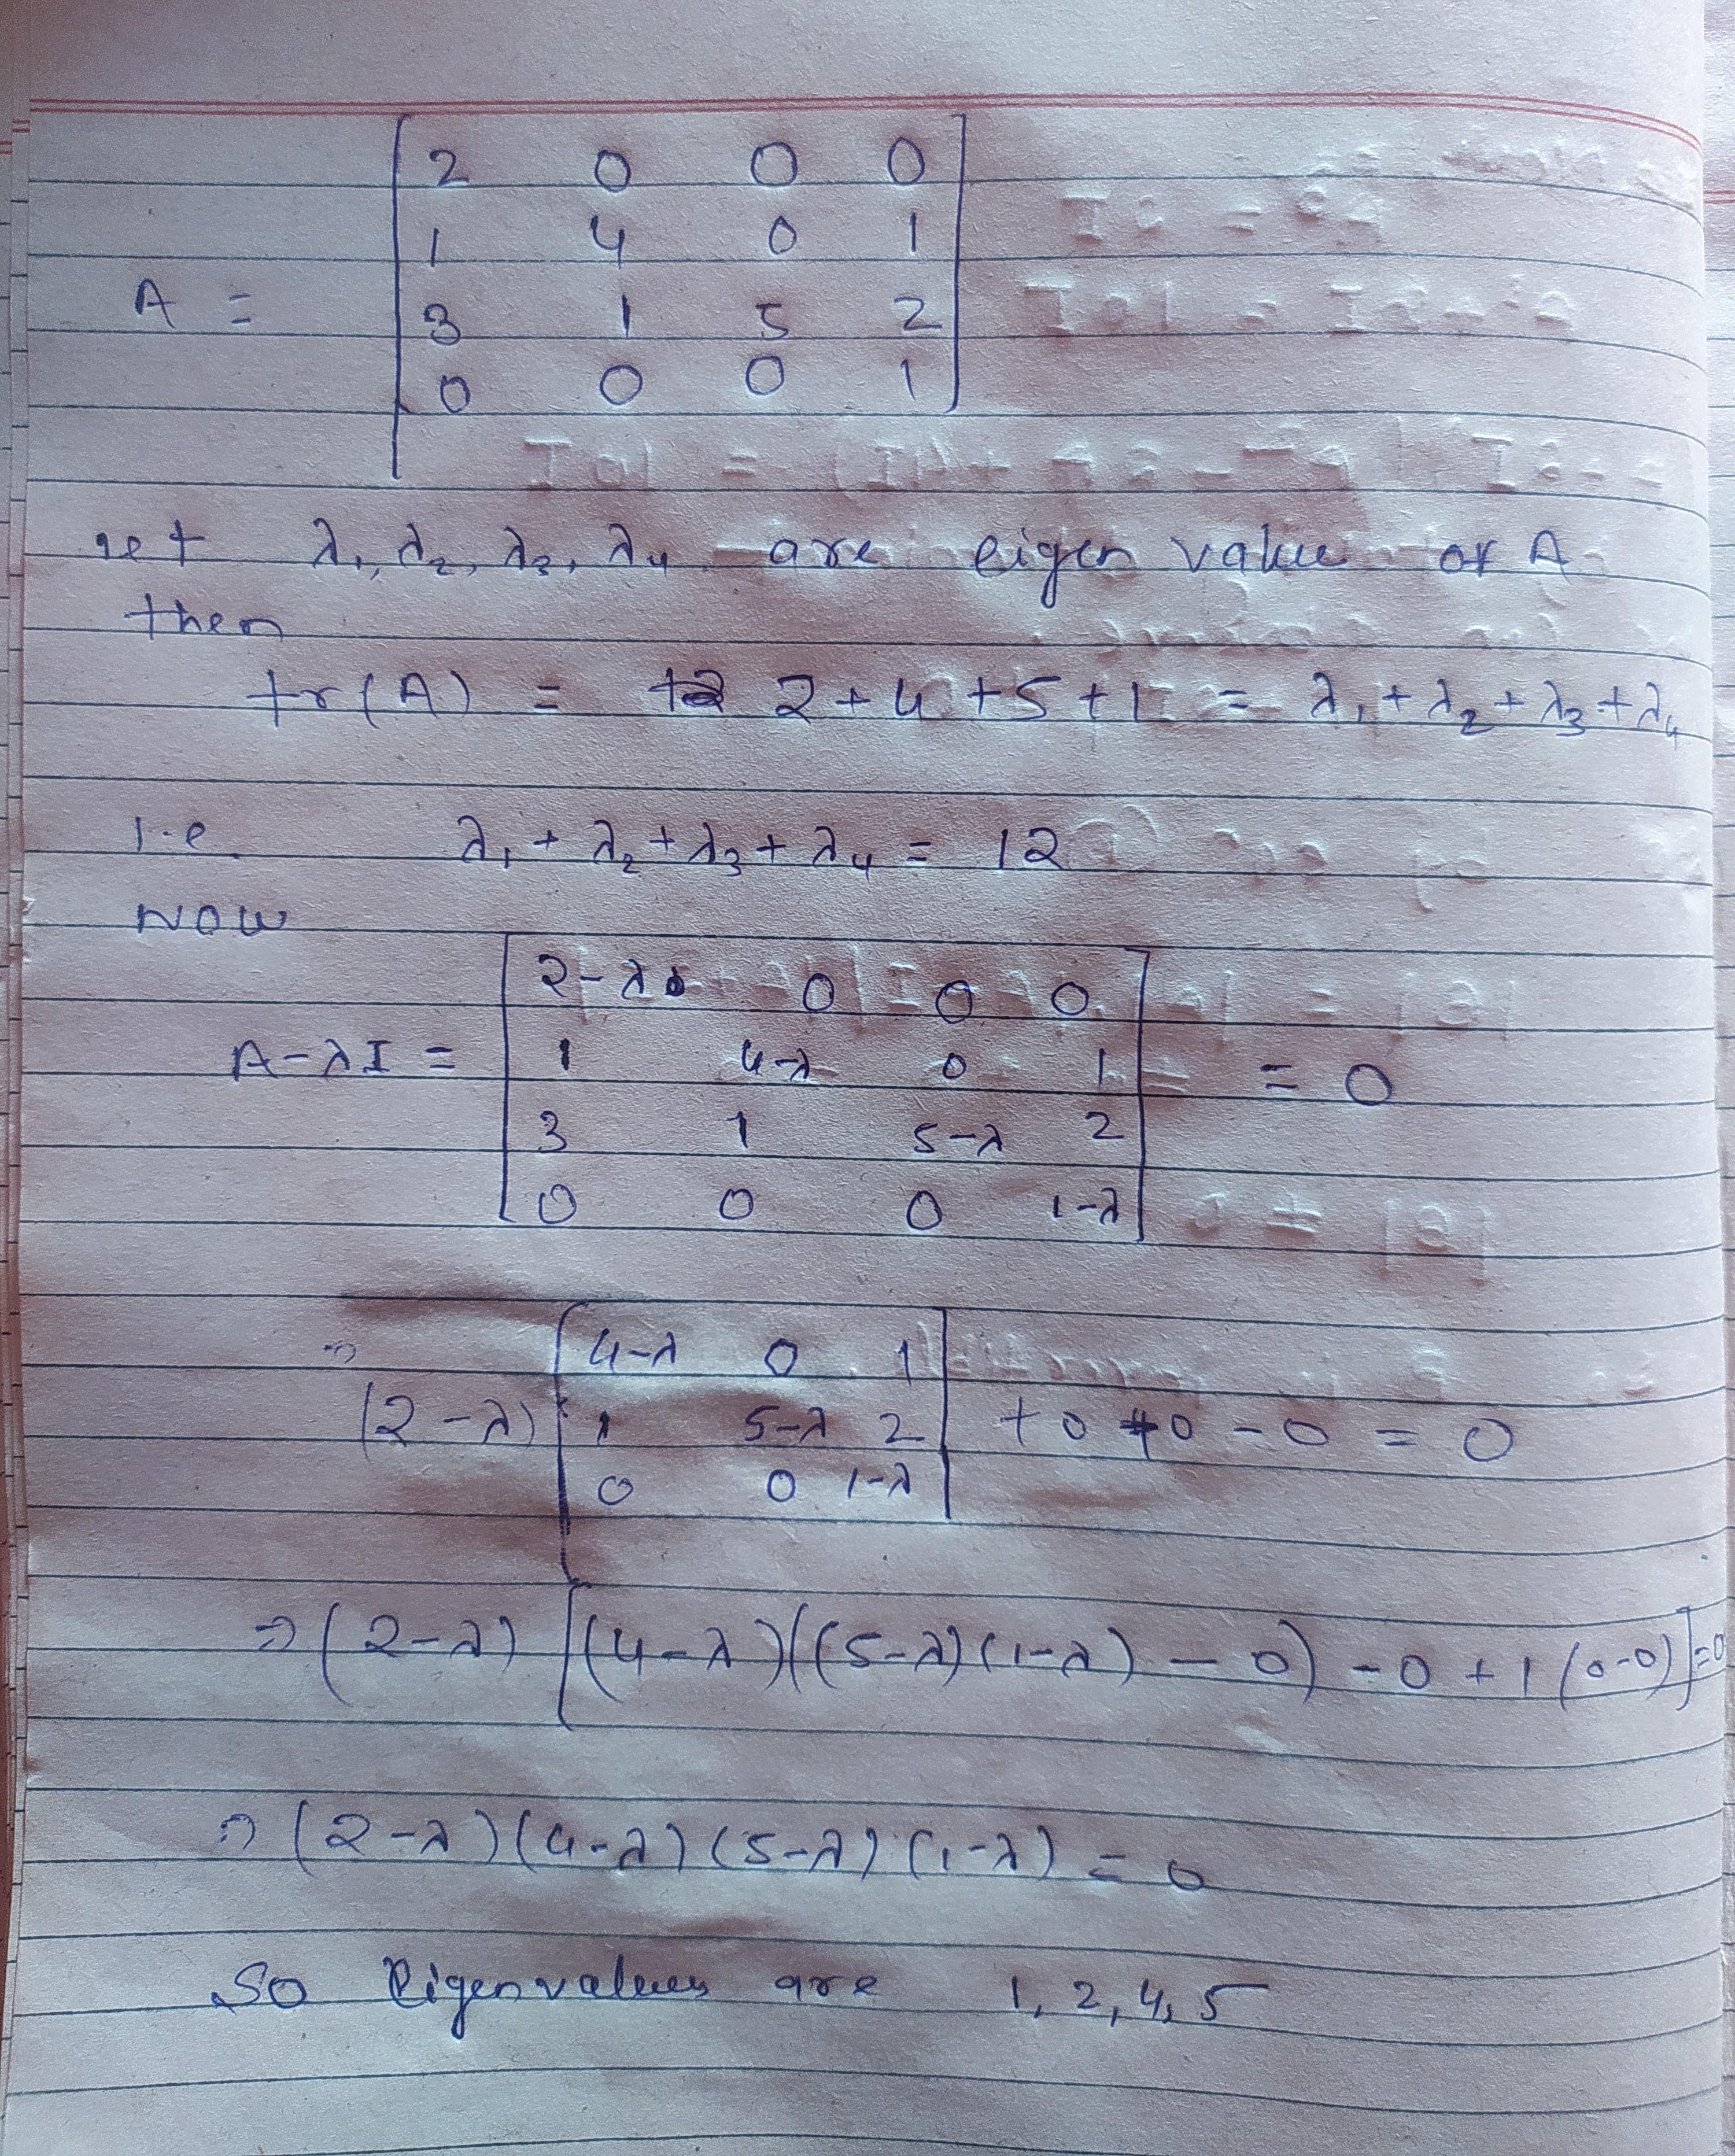 2 0 0 0
1 4 0 1
A =
3 1 5 2
0 0 0 1
let λ₁, λ₂, λ₃, λ₄ are eigen value of A
then
tr(A) = 2+4+5+1 = λ₁+λ₂+λ₃+λ₄
i.e λ₁+λ₂+λ₃+λ₄ = 12
NOW
2-λ 0 0 0
A-λI = 1 4-λ 0 1 = 0
3 1 5-λ 2
0 0 0 1-λ
⇒ 4-λ 0 1
(2-λ) 1 5-λ 2 +0+0-0 = 0
0 0 1-λ
⇒ (2-λ) [(4-λ)((5-λ)(1-λ) - 0) - 0 + 1(0-0)] = 0
⇒ (2-λ)(4-λ)(5-λ)(1-λ) = 0
So Eigenvalues are 1, 2, 4, 5